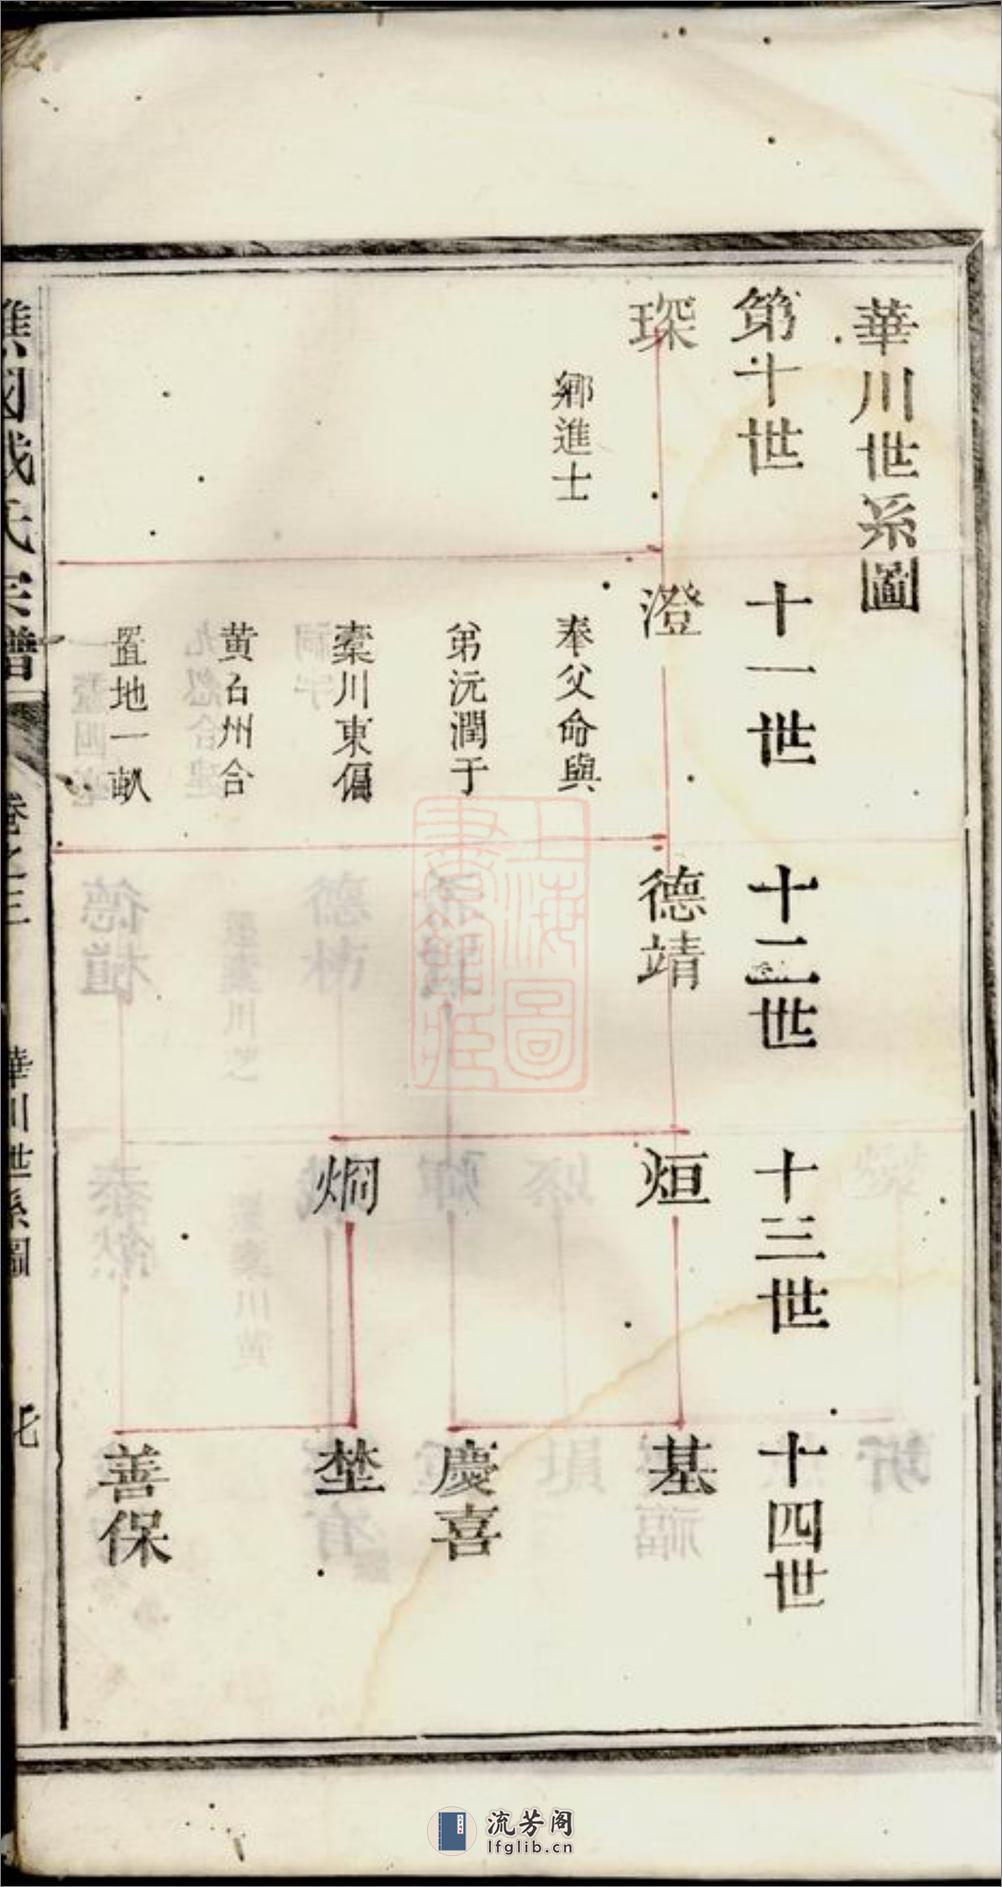 華川世系圖
第十世
琛
鄉進士
十一世
澄
奉父命與
弟沅潤于
槖川東偏
黄石州合
置地一畝
十二世
德靖
十三世
烜
烱
十四世
基
慶喜
埜
善保
譙國戴氏宗譜
卷之三
華川世系圖
七
上海圖
書館藏
流芳阁
lfglib.cn